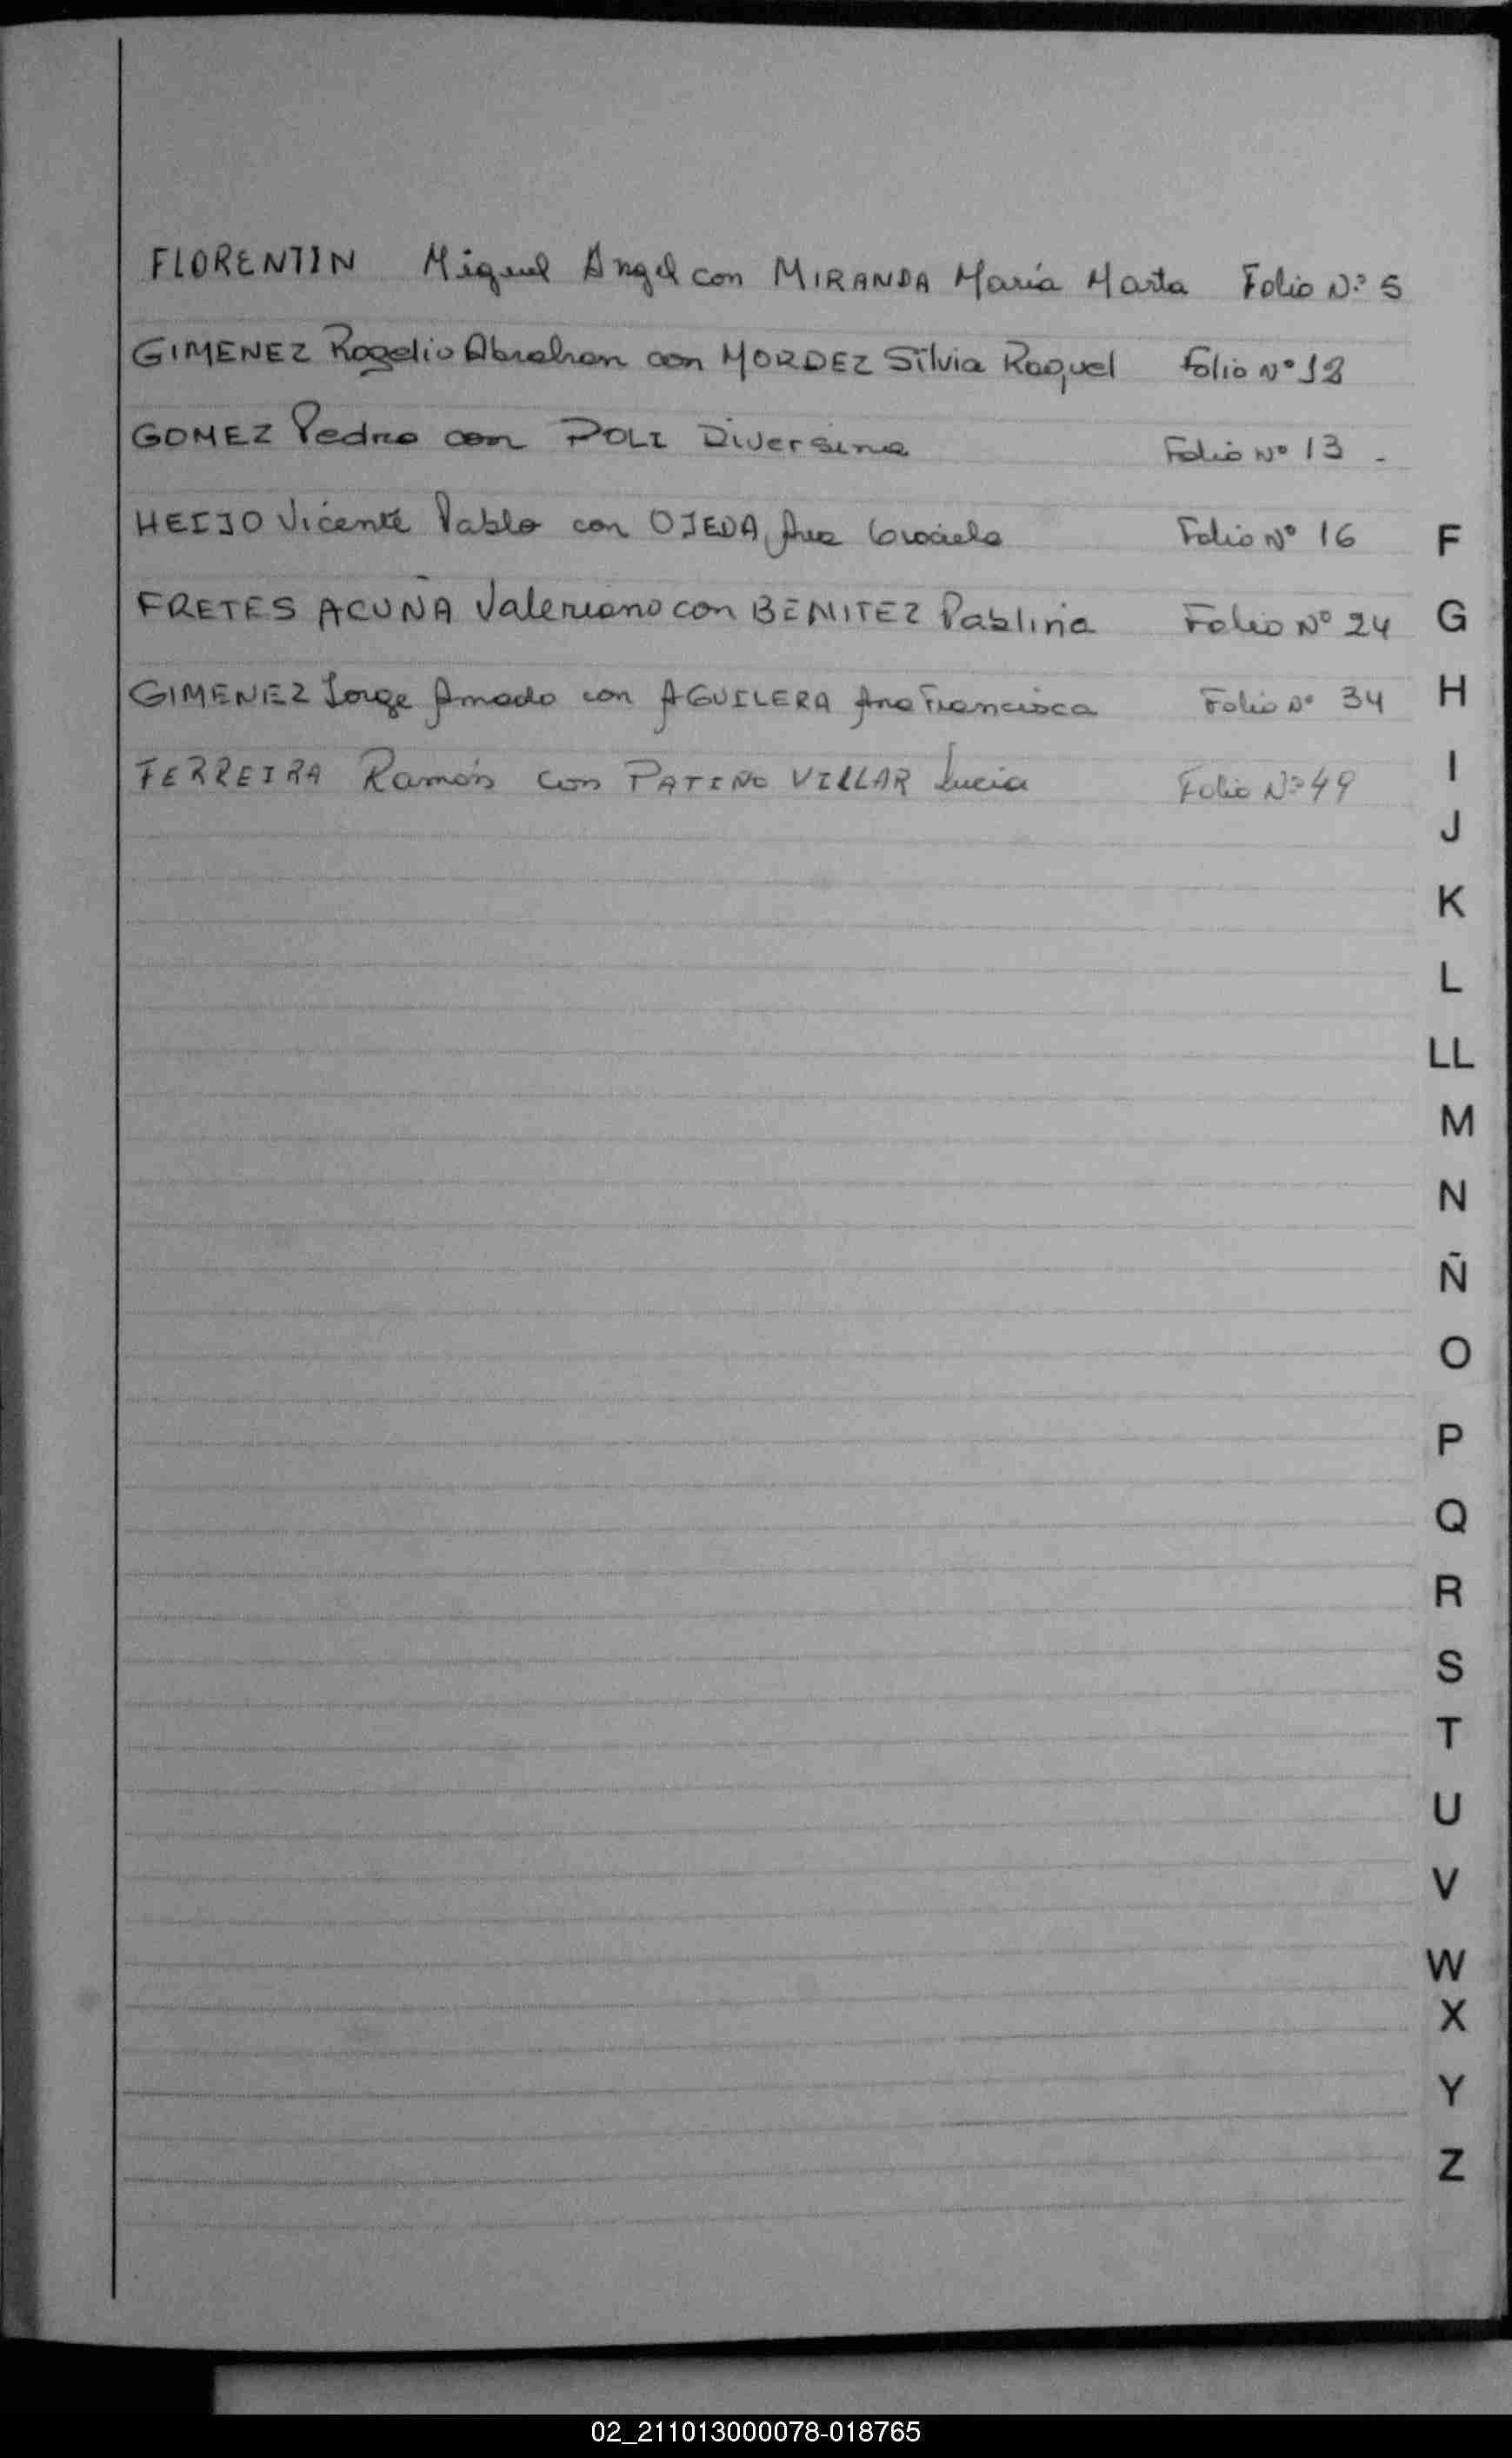 FLORENTIN Miguel Angel con MIRANDA María Marta Folio Nº 5
GIMENEZ Rogelio Abrahan con MORDEZ Silvia Raquel Folio Nº 12
GOMEZ Pedro con POLI Diversina Folio Nº 13 -
HEIJO Vicente Pablo con OJEDA, Ana Graciela Folio Nº 16
FRETES ACUÑA Valeriano con BENITEZ Pablina Folio Nº 24
GIMENEZ Jorge Amado con AGUILERA Ana Francisca Folio Nº 34
FERREIRA Ramón con PATIÑO VILLAR Lucia Folio Nº 49
F
G
H
I
J
K
L
LL
M
N
Ñ
O
P
Q
R
S
T
U
V
W
X
Y
Z
02_211013000078-018765